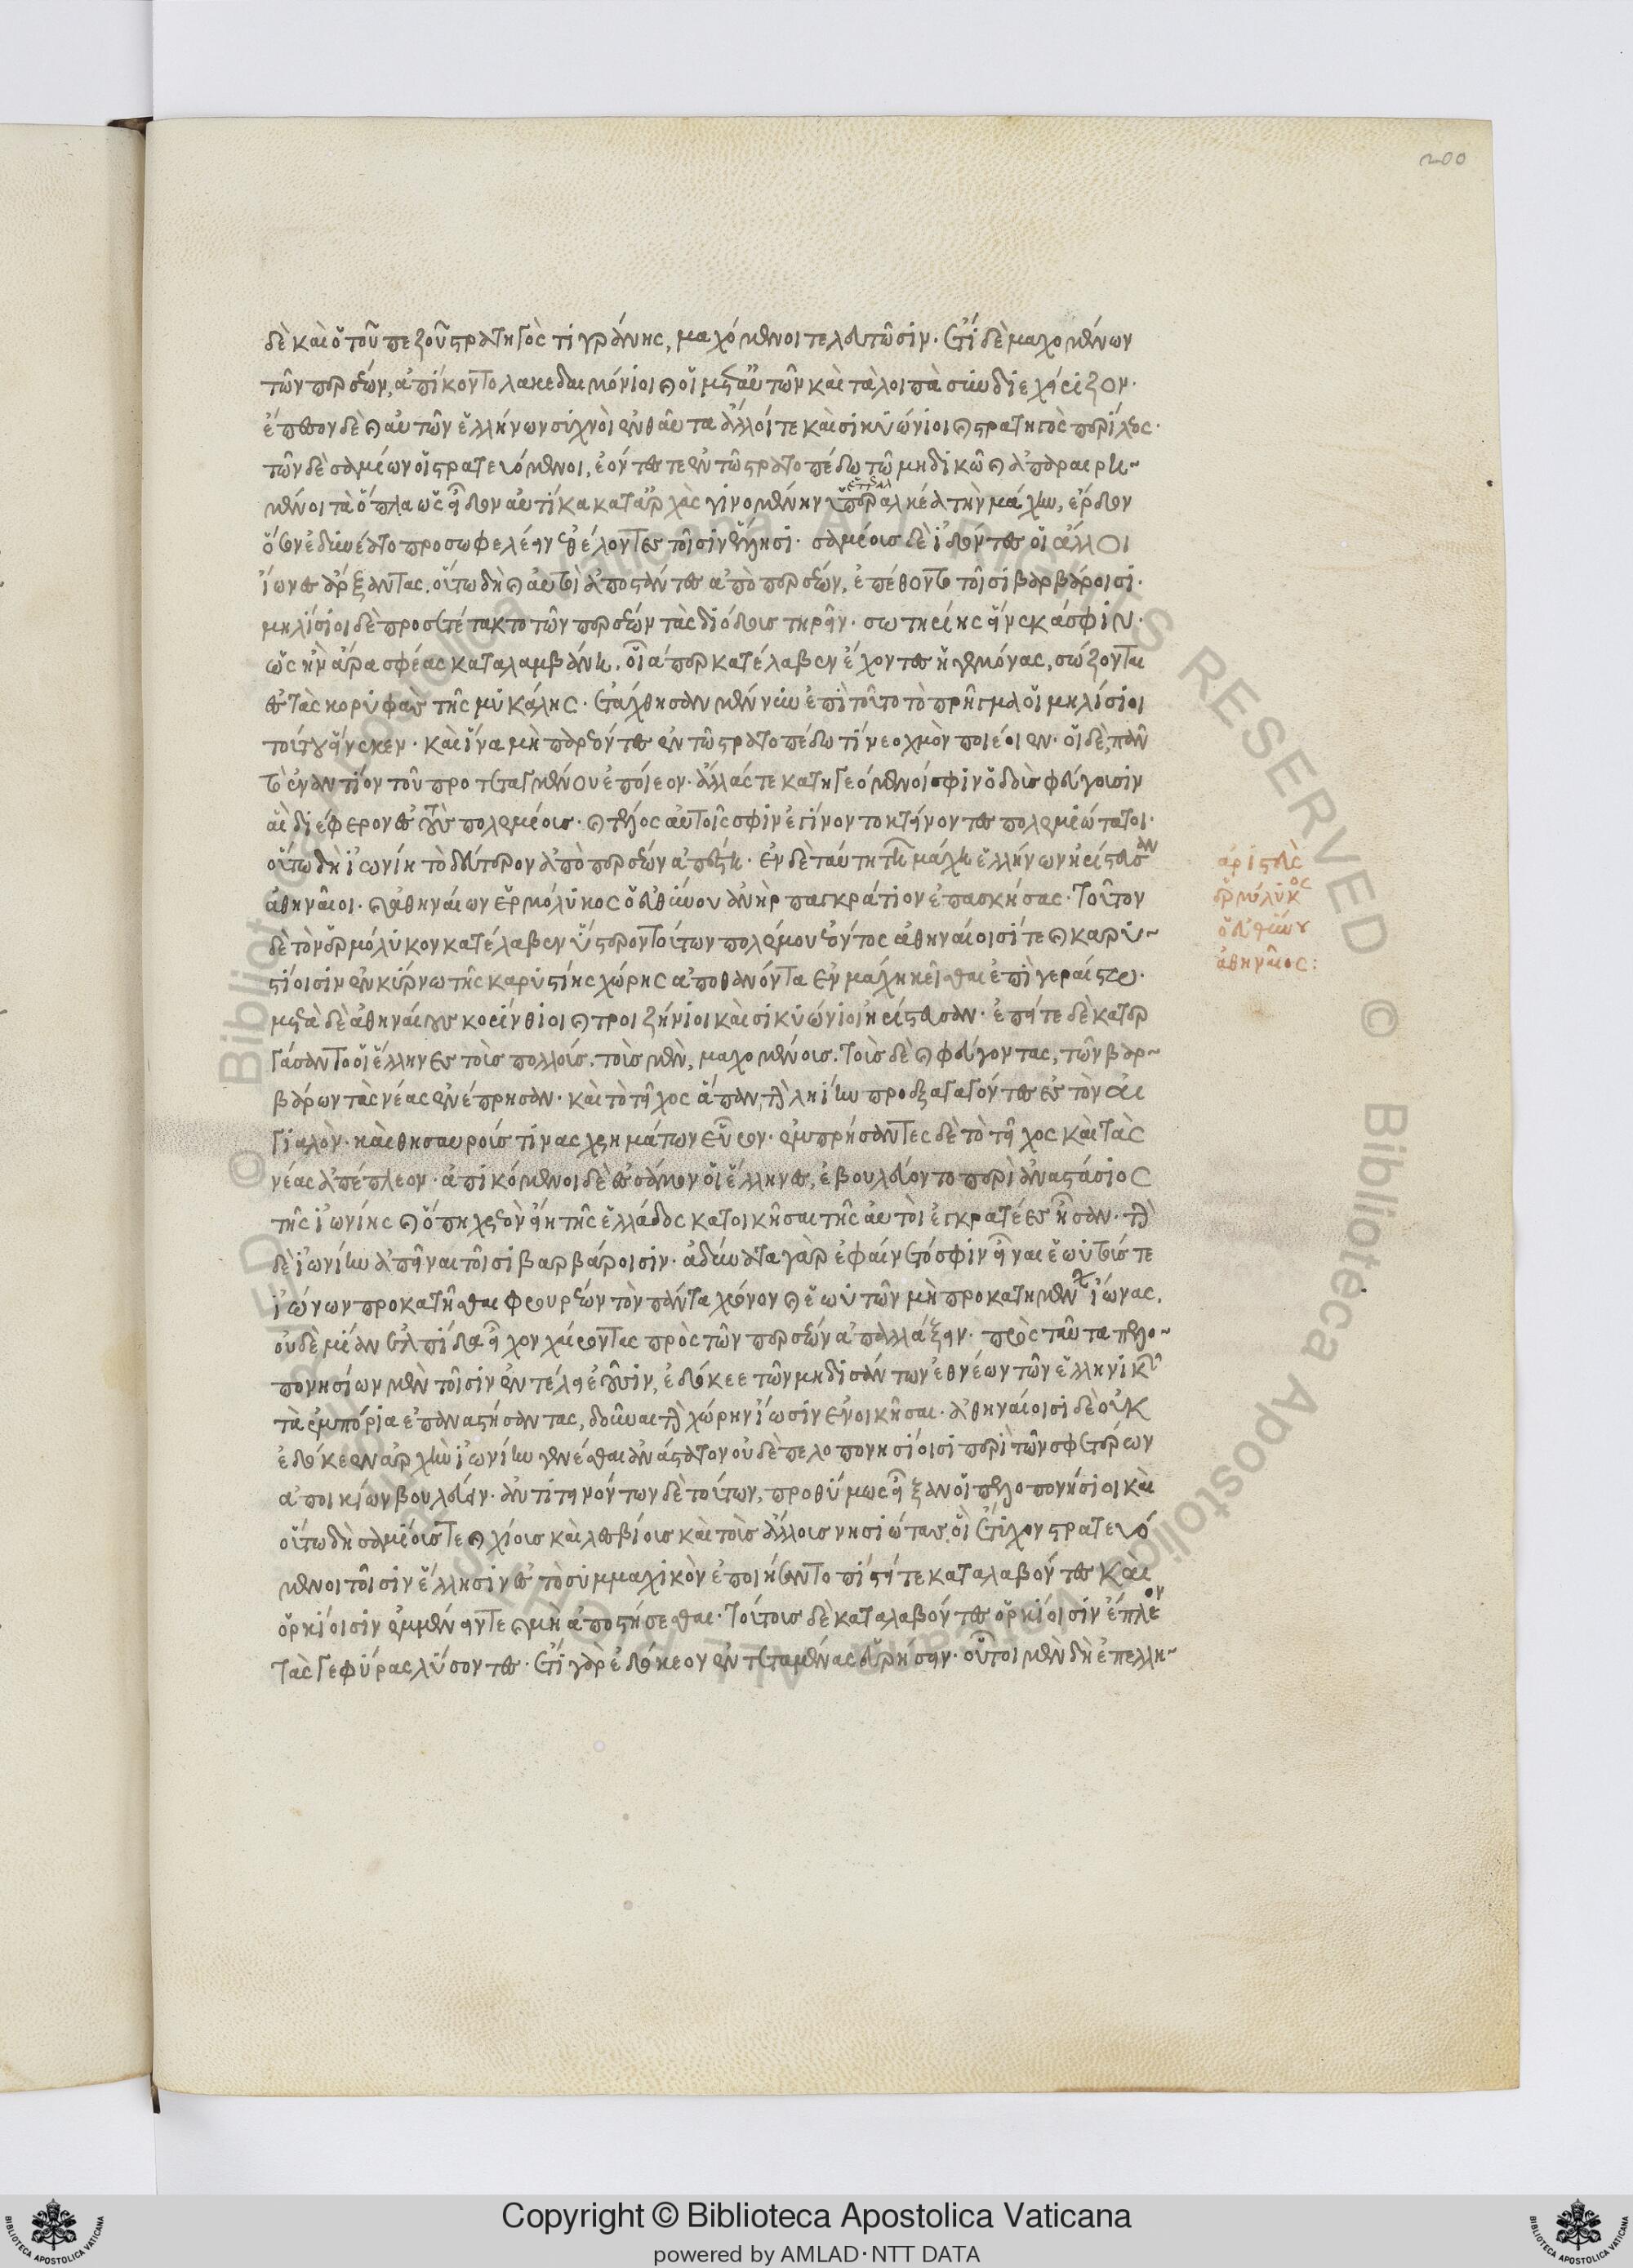 200
δὲ καὶ ὁ τοῦ πεζοῦ στρατηγὸς τιγράνης, μαχόμενοι τελευτῶσιν. ἔτι δὲ μαχομένων
τῶν περσέων, ἀπίκοντο λακεδαιμόνιοι καὶ οἱ μετ' αὐτῶν καὶ τὰ λοιπὰ συνδιεχείριζον.
ἔπεσον δὲ καὶ αὐτῶν ἑλλήνων συχνοὶ ἐνθαῦτα ἄλλοι τε καὶ σικυώνιοι καὶ στρατηγὸς περίλεος.
τῶν δὲ σαμίων οἱ στρατευόμενοι, ἐόντες τε ἐν τῷ στρατοπέδῳ τῷ μηδικῷ καὶ ἀπαραιρη-
μένοι τὰ ὅπλα ὡς εἶδον αὐτίκα κατ' ἀρχὰς γινομένην ἑτεραλκέα τὴν μάχην, ἔρδον
ὅσον ἐδυνέατο προσωφελέειν ἐθέλοντες τοῖσιν ἕλλησι. σαμίους δὲ ἰδόντες οἱ ἄλλοι
ἴωνες ἄρξαντας, οὕτω δὴ καὶ αὐτοὶ ἀποστάντες ἀπὸ περσέων, ἐπέθοντο τοῖσι βαρβάροισι.
μιλησίοισι δὲ προσετέτακτο τῶν περσέων τὰς διόδους τηρεῖν. σωτηρίης εἵνεκά σφιν.
ὡς ἢν ἄρα σφέας καταλαμβάνῃ, οἷά περ κατέλαβεν ἔχοντες ἡγεμόνας, σώζονται
ἐς τὰς κορυφὰς τῆς μυκάλης. ἐτάχθησαν μέν νυν ἐπὶ τοῦτο τὸ πρῆγμα οἱ μιλήσιοι
τούτου εἵνεκεν. καὶ ἵνα μὴ παρεόντες ἐν τῷ στρατοπέδῳ τι νεοχμὸν ποιέοιεν. οἱ δὲ, πᾶν
τὸ ἐναντίον τοῦ προστεταγμένου ἐποίεον. ἄλλας τε κατηγεόμενοί σφιν ὁδοὺς φεύγουσιν
αἳ διέφερον ἐς τοὺς πολεμίους. καὶ τέλος αὐτοί σφιν ἐγίνοντο κτείνοντες πολεμιώτατοι.
οὕτω δὴ ἰωνίη τὸ δεύτερον ἀπὸ περσέων ἀπέστη. ἐν δὲ ταύτῃ τῇ μάχῃ ἑλλήνων ἠρίστευσαν
ἀθηναῖοι. καὶ ἀθηναίων ἑρμόλυκος ὁ εὐθύνου ἀνὴρ παγκράτιον ἐπασκήσας. τοῦτον
δὲ τὸν ἑρμόλυκον κατέλαβεν ὕστερον τούτων πολέμου ἐόντος ἀθηναίοισί τε καὶ καρυ-
στίοισιν ἐν κύρνῳ τῆς καρυστίης χώρης ἀποθανόντα ἐν μάχῃ κεῖσθαι ἐπὶ γεραιστῷ.
μετὰ δὲ ἀθηναίους κορίνθιοι καὶ τροιζήνιοι καὶ σικυώνιοι ἠρίστευσαν. ἐπείτε δὲ κατερ
γάσαντο οἱ ἕλληνες τοὺς πολλούς. τοὺς μὲν, μαχομένους. τοὺς δὲ καὶ φεύγοντας, τῶν βαρ-
βάρων τὰς νέας ἐνέπρησαν. καὶ τὸ τεῖχος ἅπαν, τὴν ληίην προεξαγαγόντες ἐς τὸν αἰ
γιαλόν. καὶ θησαυρούς τινας χρημάτων εὗρον. ἐμπρήσαντες δὲ τὸ τεῖχος καὶ τὰς
νέας ἀπέπλεον. ἀπικόμενοι δὲ ἐς σάμον οἱ ἕλληνες, ἐβουλεύοντο περὶ ἀναστάσιος
τῆς ἰωνίης καὶ ὅπη χρεὸν εἴη τῆς ἑλλάδος κατοικῆσαι τῆς αὐτοὶ ἐγκρατέες ἦσαν. τὴν
δὲ ἰωνίην ἀπεῖναι τοῖσι βαρβάροισιν. ἀδύνατα γὰρ ἐφαίνετό σφιν εἶναι ἑωυτούς τε
ἰώνων προκατῆσθαι φρουρέων τὸν πάντα χρόνον καὶ ἑωυτῶν μὴ προκατημένων ἴωνας,
οὐδεμίαν ἐλπίδα εἶχον χαίροντας πρὸς τῶν περσέων ἀπαλλάξειν. πρὸς ταῦτα πελο-
πονησίων μὲν τοῖσιν ἐν τέλει ἐοῦσιν, ἐδόκεε τῶν μηδισάντων ἐθνέων τῶν ἑλληνικῶν
τὰ ἐμπόρια ἐπαναστήσαντας, δοῦναι τὴν χώρην ἴωσιν ἐνοικῆσαι. ἀθηναίοισι δὲ οὐκ
ἐδόκεεν ἀρχὴν ἰωνίην γενέσθαι ἀνάστατον οὐδὲ πελοπονησίοισι περὶ τῶν σφετέρων
ἀποικιῶν βουλεύειν. ἀντιτεινόντων δὲ τούτων, προθύμως εἶξαν οἱ πελοπονήσιοι καὶ
οὕτω δὴ σαμίους τε καὶ χίους καὶ λεσβίους καὶ τοὺς ἄλλους νησιώτας, οἳ ἔτυχον στρατευό
μενοι τοῖσιν ἕλλησιν ἐς τὸ συμμαχικὸν ἐποιήσαντο πίστι τε καταλαβόντες καὶ
ὁρκίοισιν ἐμμένειν τε καὶ μὴ ἀποστήσεσθαι. τούτους δὲ καταλαβόντες ὁρκίοισιν ἔπλεον
τὰς γεφύρας λύσοντες. ἔτι γὰρ ἐδόκεον ἐντεταμένας εὑρήσειν. οὗτοι μὲν δὴ ἐπ' ἑλλη-
ἀριστεὺς
ἑρμόλυκος
ὁ εὐθύνου
ἀθηναῖος:
© Biblioteca Apostolica Vaticana ALL RIGHTS RESERVED
Copyright © Biblioteca Apostolica Vaticana
powered by AMLAD·NTT DATA
BIBLIOTECA APOSTOLICA VATICANA
BIBLIOTECA APOSTOLICA VATICANA